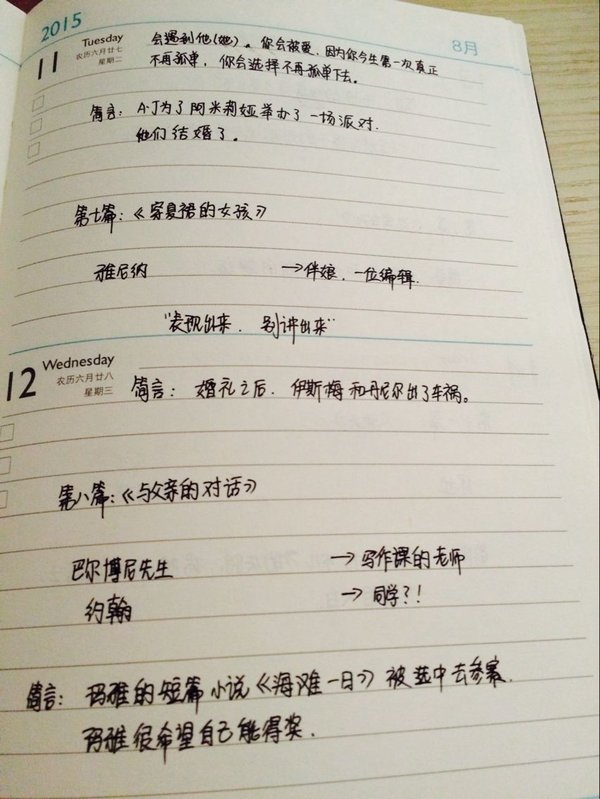 2015
8月
11 Tuesday
农历六月廿七
星期二
会遇到他(她)。你会被爱,因为你今生第一次真正
不再孤单,你会选择不再孤单下去。
简言:A·J为了阿米莉娅举办了一场派对.
他们结婚了。
第七篇:《穿夏裙的女孩》
雅尼纳 →伴娘.一位编辑.
"表现出来.别讲出来"
12 Wednesday
农历六月廿八
星期三
简言:婚礼之后.伊斯梅和丹尼尔出了车祸。
第八篇:《与父亲的对话》
巴尔博尼先生 →写作课的老师
约翰 →同学?!
简言:玛雅的短篇小说《海滩一日》被选中去参赛.
玛雅很希望自己能得奖.